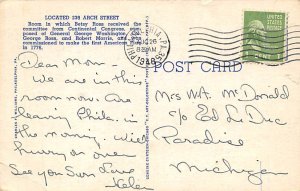 LOCATED 236 ARCH STREET
Room in which Betsy Ross received the
committee from Continental Congress,
posed of General George Washington, Col.
George Ross, and Robert Morris, and was
commissioned to make the first American
in 1776.
Dear Mom
We are in this
room now. Are
leaving Phila. in
the morning. Will
hurry on over
See you Sun Love
Helen
POST CARD
Mrs Wm. McDonald
c/o Ed Le Duc
Paradise
Michigan
UNITED STATES
POSTAGE
1 CENT 1